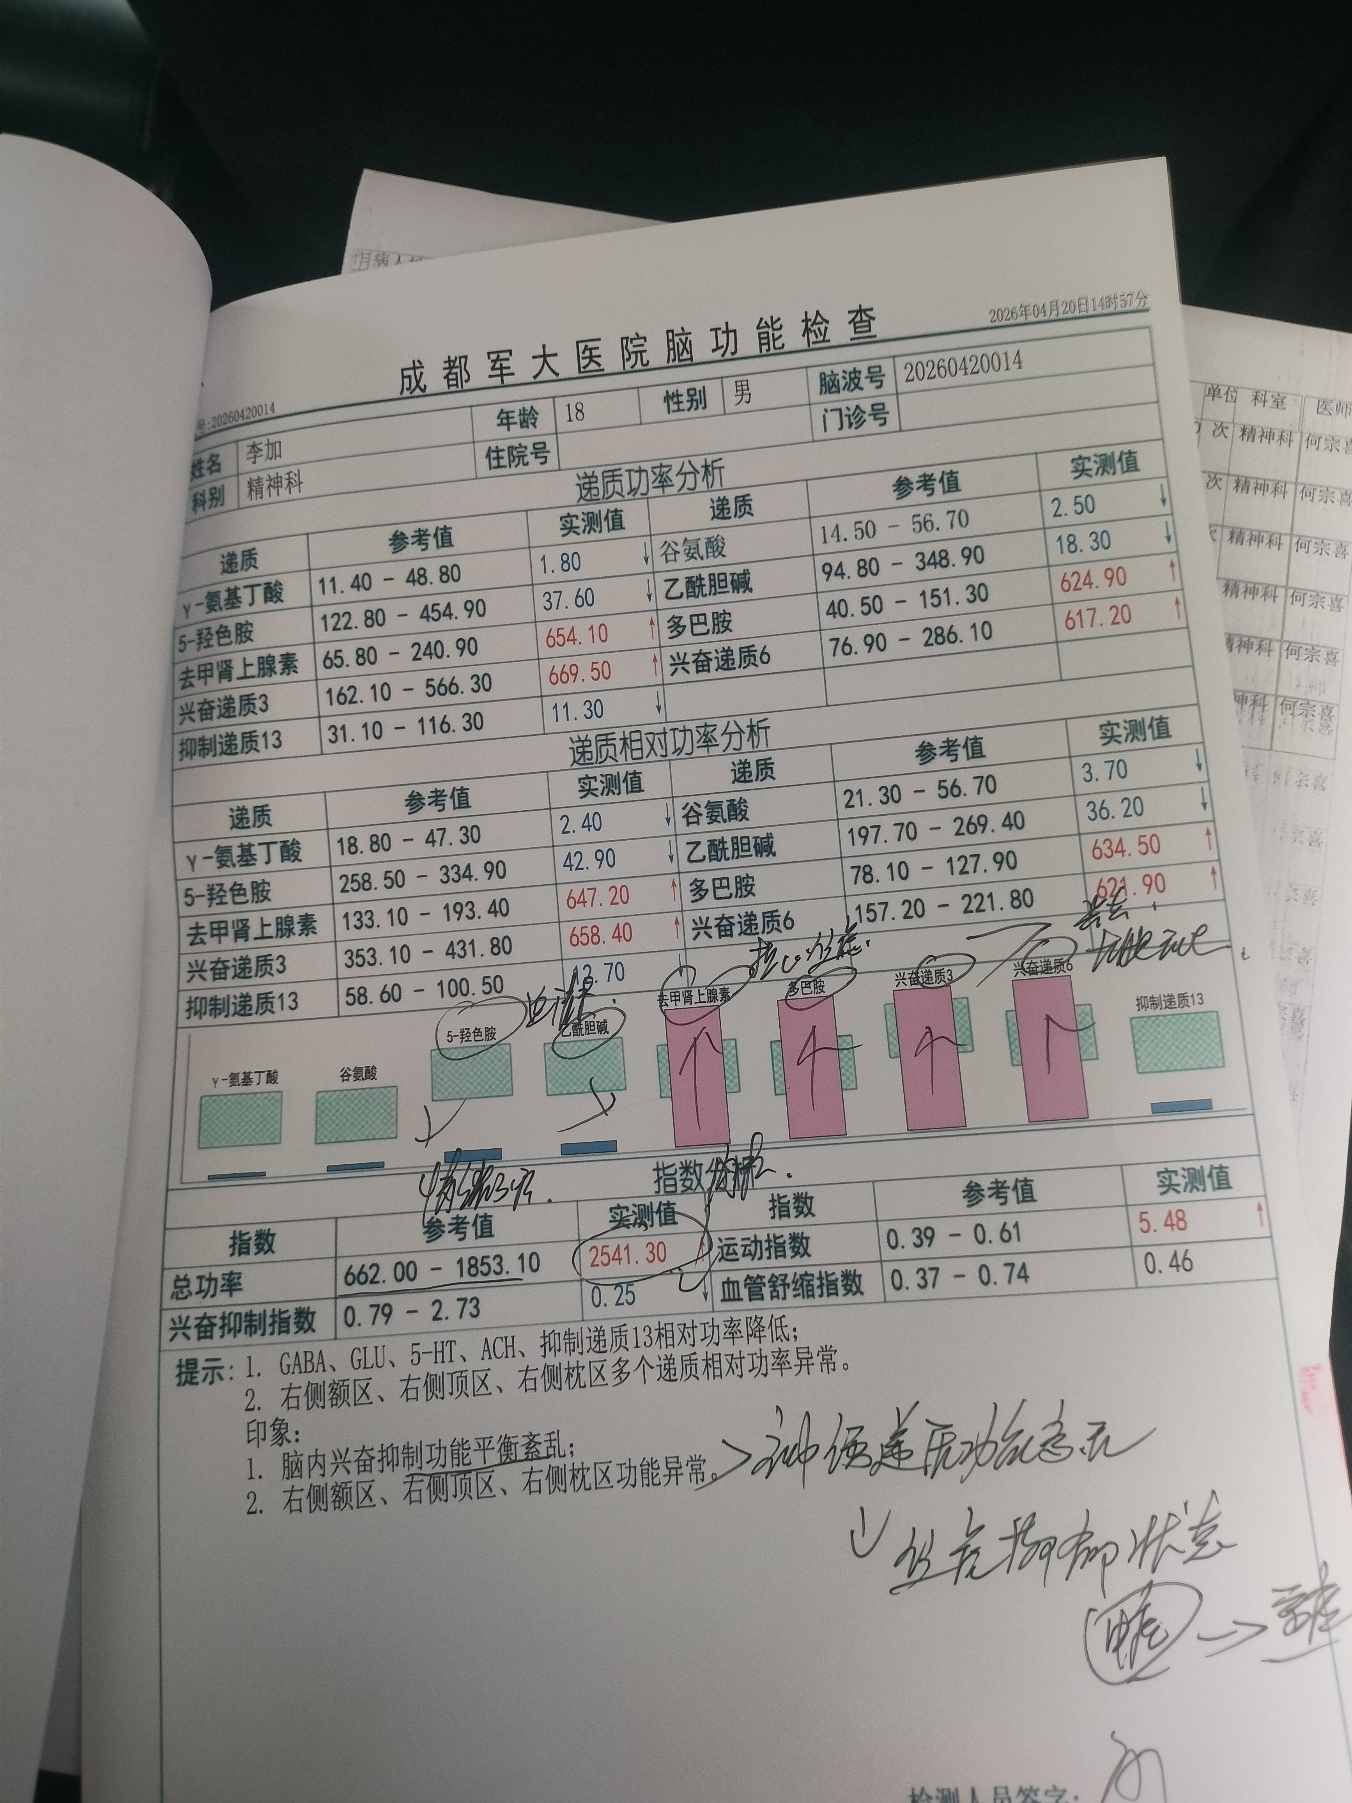 2026年04月20日14时57分
成都军大医院脑功能检查
号:20260420014
姓名 李加 年龄 18 性别 男 脑波号 20260420014
科别 精神科 住院号 门诊号
递质功率分析
递质 参考值 实测值 递质 参考值 实测值
γ-氨基丁酸 11.40 - 48.80 1.80 ↓ 谷氨酸 14.50 - 56.70 2.50 ↓
5-羟色胺 122.80 - 454.90 37.60 ↓ 乙酰胆碱 94.80 - 348.90 18.30 ↓
去甲肾上腺素 65.80 - 240.90 654.10 ↑ 多巴胺 40.50 - 151.30 624.90 ↑
兴奋递质3 162.10 - 566.30 669.50 ↑ 兴奋递质6 76.90 - 286.10 617.20 ↑
抑制递质13 31.10 - 116.30 11.30 ↓
递质相对功率分析
递质 参考值 实测值 递质 参考值 实测值
γ-氨基丁酸 18.80 - 47.30 2.40 ↓ 谷氨酸 21.30 - 56.70 3.70 ↓
5-羟色胺 258.50 - 334.90 42.90 ↓ 乙酰胆碱 197.70 - 269.40 36.20 ↓
去甲肾上腺素 133.10 - 193.40 647.20 ↑ 多巴胺 78.10 - 127.90 634.50 ↑
兴奋递质3 353.10 - 431.80 658.40 ↑ 兴奋递质6 157.20 - 221.80 621.90 ↑
抑制递质13 58.60 - 100.50 .70
γ-氨基丁酸 谷氨酸 5-羟色胺 乙酰胆碱 去甲肾上腺素 多巴胺 兴奋递质3 兴奋递质6 抑制递质13
指数
指数 参考值 实测值 指数 参考值 实测值
总功率 662.00 - 1853.10 2541.30 ↑ 运动指数 0.39 - 0.61 5.48 ↑
兴奋抑制指数 0.79 - 2.73 0.25 ↓ 血管舒缩指数 0.37 - 0.74 0.46
提示: 1. GABA、GLU、5-HT、ACH、抑制递质13相对功率降低;
2. 右侧额区、右侧顶区、右侧枕区多个递质相对功率异常。
印象:
1. 脑内兴奋抑制功能平衡紊乱;
2. 右侧额区、右侧顶区、右侧枕区功能异常。
神经递质功能紊乱
焦虑抑郁状态
检测人员签字:
单位 科室 医师
次 精神科 何宗喜
次 精神科 何宗喜
次 精神科 何宗喜
精神科 何宗喜
精神科 何宗喜
神科 何宗喜